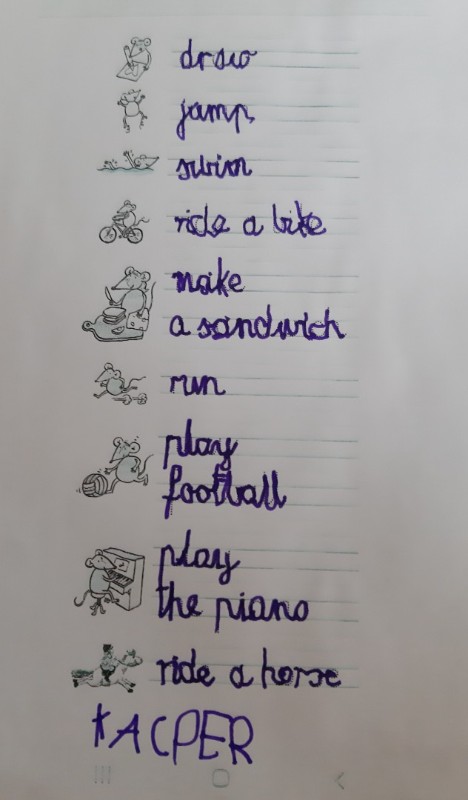 draw
jamp
swim
ride a bike
make
a sandwich
run
play
football
play
the piano
ride a horse
KACPER